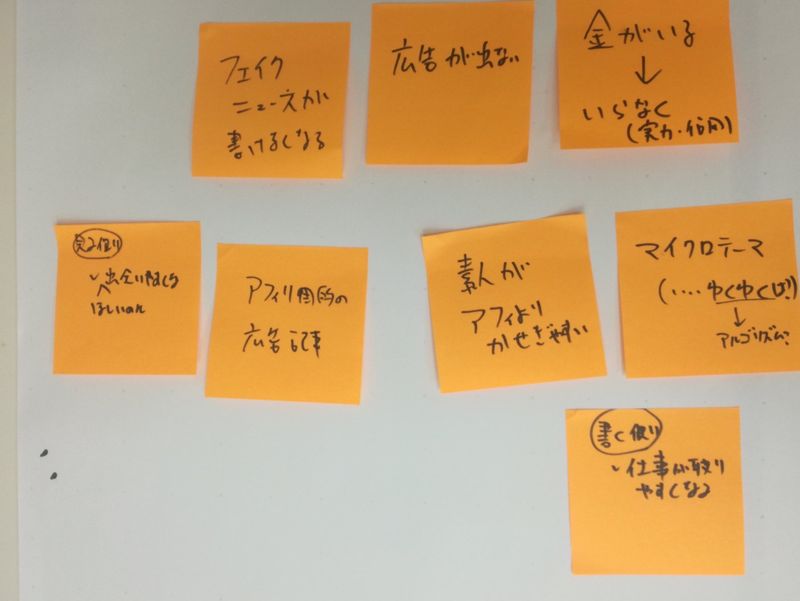 フェイク
ニュースが
書けなくなる
広告が出ない
金がいる
↓
いらなく
(実力・信用)
見る側
✓出会いやすくなる
ほしいのに
アフィリ目的の
広告記事
素人が
アフィより
かせぎやすい
マイクロテーマ
(・・・・ゆくゆくは!)
↓
アルゴリズム?
書く側
✓仕事が取り
やすくなる